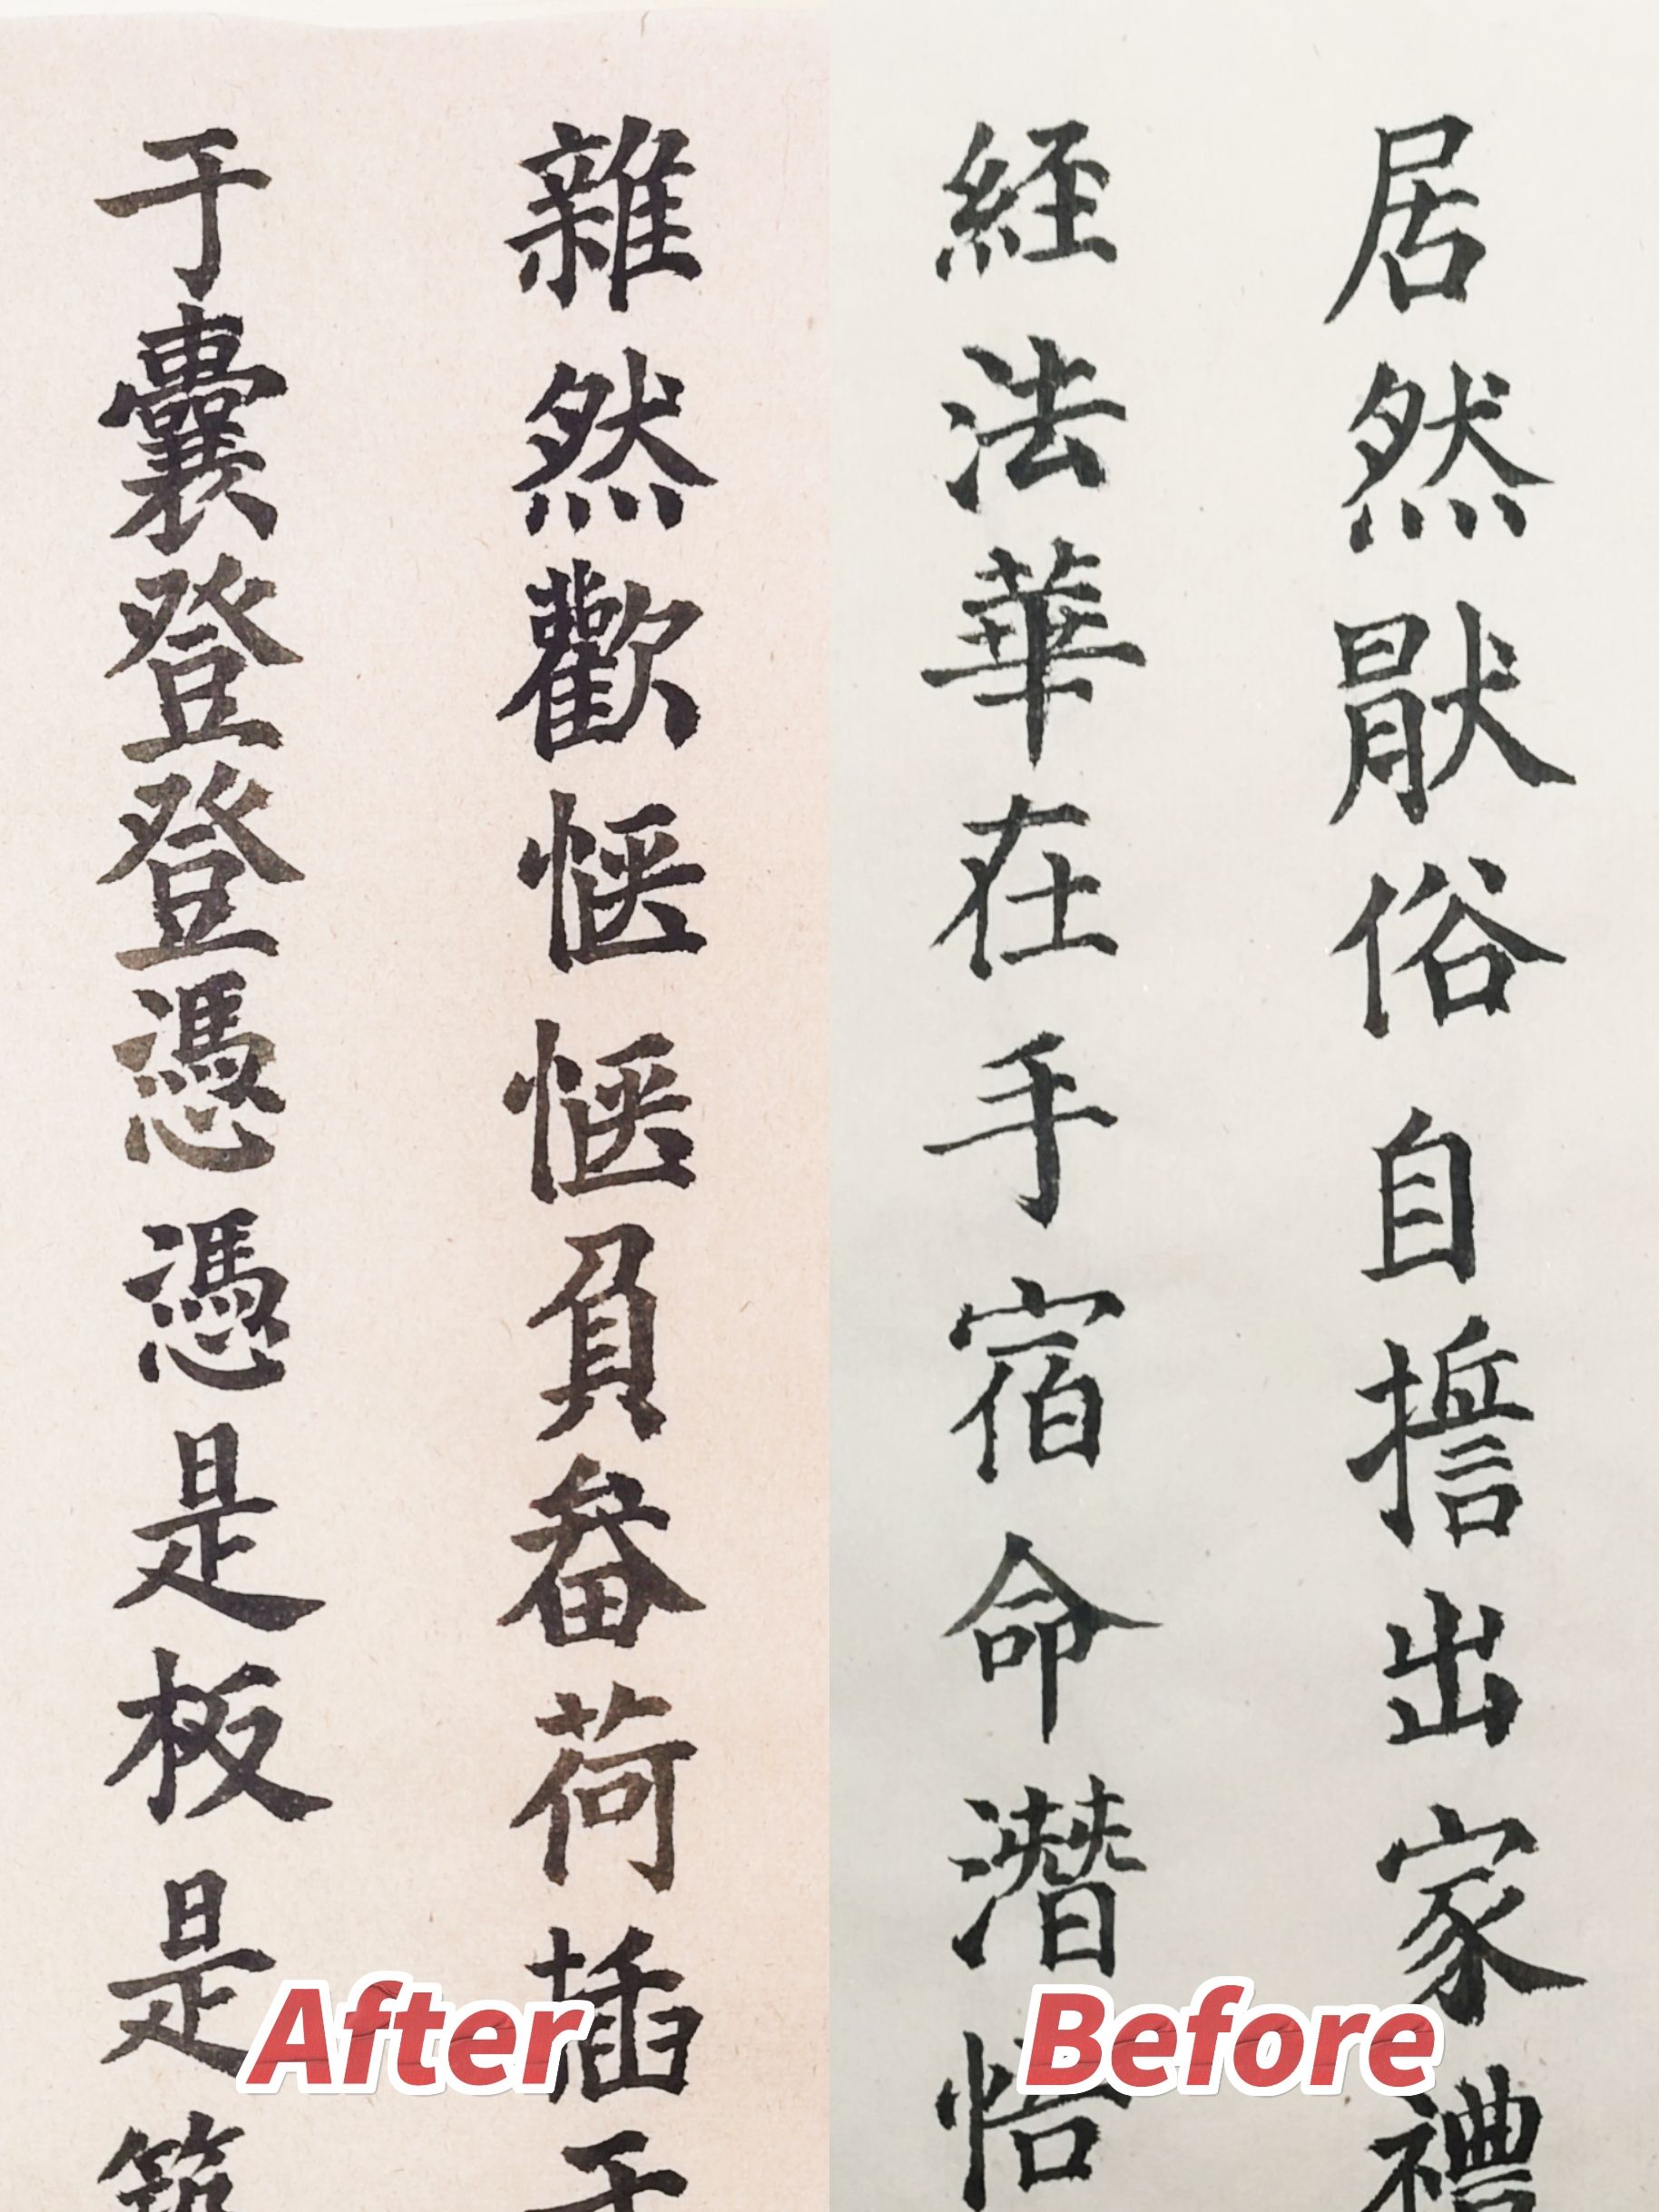 居然猒俗自誓出家禮
經法華在手宿命潛悟
雜然歡愜愜負畚荷插于
于囊登登憑憑是板是築
After
Before